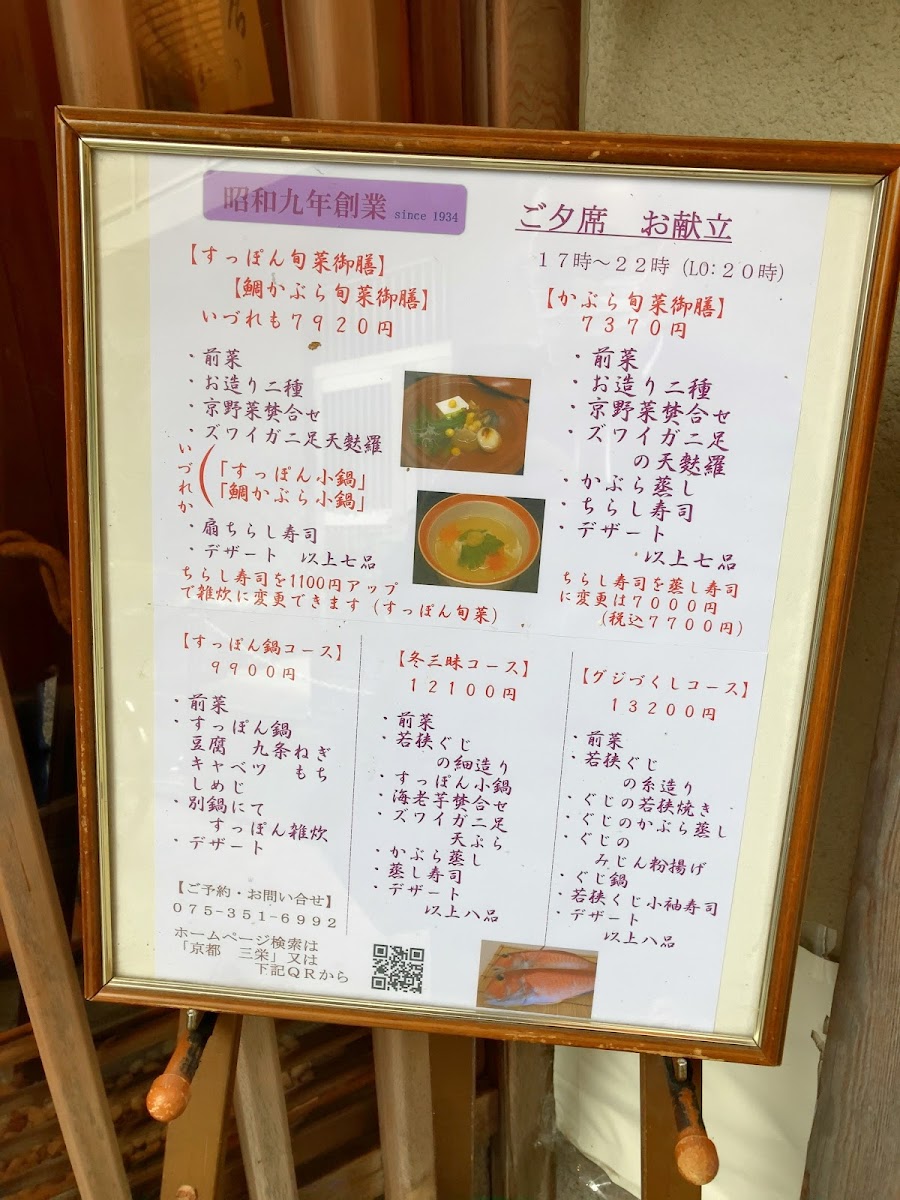 昭和九年創業 since 1934
ご夕席　お献立
１７時～２２時（LO:２０時）
【すっぽん旬菜御膳】
【鯛かぶら旬菜御膳】
いづれも７９２０円
・前菜
・お造り二種
・京野菜焚合せ
・ズワイガニ足天麩羅
いづれか
「すっぽん小鍋」
「鯛かぶら小鍋」
・扇ちらし寿司
・デザート　以上七品
ちらし寿司を1100円アップ
で雑炊に変更できます（すっぽん旬菜）
【かぶら旬菜御膳】
７３７０円
・前菜
・お造り二種
・京野菜焚合せ
・ズワイガニ足
の天麩羅
・かぶら蒸し
・ちらし寿司
・デザート
以上七品
ちらし寿司を蒸し寿司
に変更は７０００円
（税込７７００円）
【すっぽん鍋コース】
９９００円
・前菜
・すっぽん鍋
豆腐　九条ねぎ
キャベツ　もち
しめじ
・別鍋にて
すっぽん雑炊
・デザート
【冬三昧コース】
１２１００円
・前菜
・若狭ぐじ
の細造り
・すっぽん小鍋
・海老芋焚合せ
・ズワイガニ足
天ぷら
・かぶら蒸し
・蒸し寿司
・デザート
以上八品
【グジづくしコース】
１３２００円
・前菜
・若狭ぐじ
の糸造り
・ぐじの若狭焼き
・ぐじのかぶら蒸し
・ぐじの
みじん粉揚げ
・ぐじ鍋
・若狭くじ小袖寿司
・デザート
以上八品
【ご予約・お問い合せ】
０７５-３５１-６９９２
ホームページ検索は
「京都　三栄」又は
下記ＱＲから